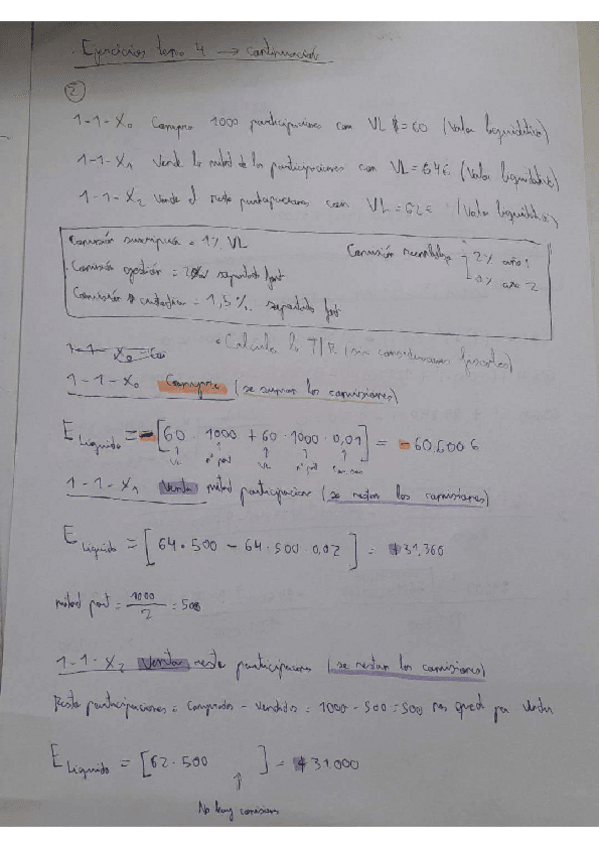 Ejercicios tema 4 → continuación
②
1-1-X₀ Compra 1000 participaciones con VL = 60 (Valor liquidativo)
1-1-X₁ Vende la mitad de las participaciones con VL = 64€ (Valor liquidativo)
1-1-X₂ Vende el resto participaciones con VL = 62€ (Valor liquidativo)
Comisión suscripción = 1% VL Comisión reembolso 2% año 1
Comisión gestión = 2% 0% año 2
Comisión = 1,5%
1-1-X₀
• Calcula la TIR (sin consideraciones fiscales)
1-1-X₀ Compra (se suman las comisiones)
E Líquido = -[60 · 1000 + 60 · 1000 · 0,01] = -60.600 €
↑ VL ↑ nº part ↑ VL ↑ nº part ↑
1-1-X₁ Venta mitad participacion (se restan las comisiones)
E Líquido = [64 · 500 - 64 · 500 · 0,02] = +31.360
mitad part = 1000/2 = 500
1-1-X₂ Venta resto participaciones (se restan las comisiones)
Resto participaciones = Compradas - Vendidas = 1000 - 500 = 500 nos queda por vender
E Líquido = [62 · 500 ] = +31.000
↑
No hay comisiones